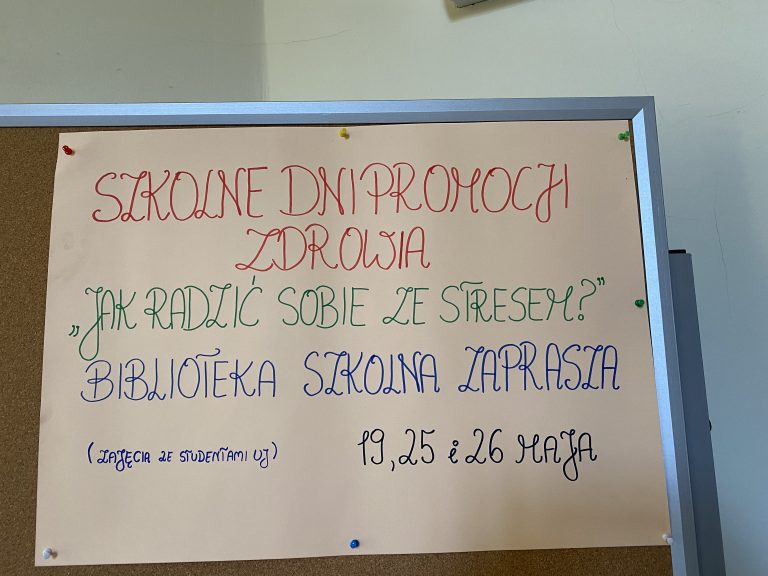 SZKOLNE DNI PROMOCJI
ZDROWIA
„JAK RADZIĆ SOBIE ZE STRESEM?”
BIBLIOTEKA SZKOLNA ZAPRASZA
(ZAJĘCIA ZE STUDENTAMI UJ)
19, 25 i 26 MAJA